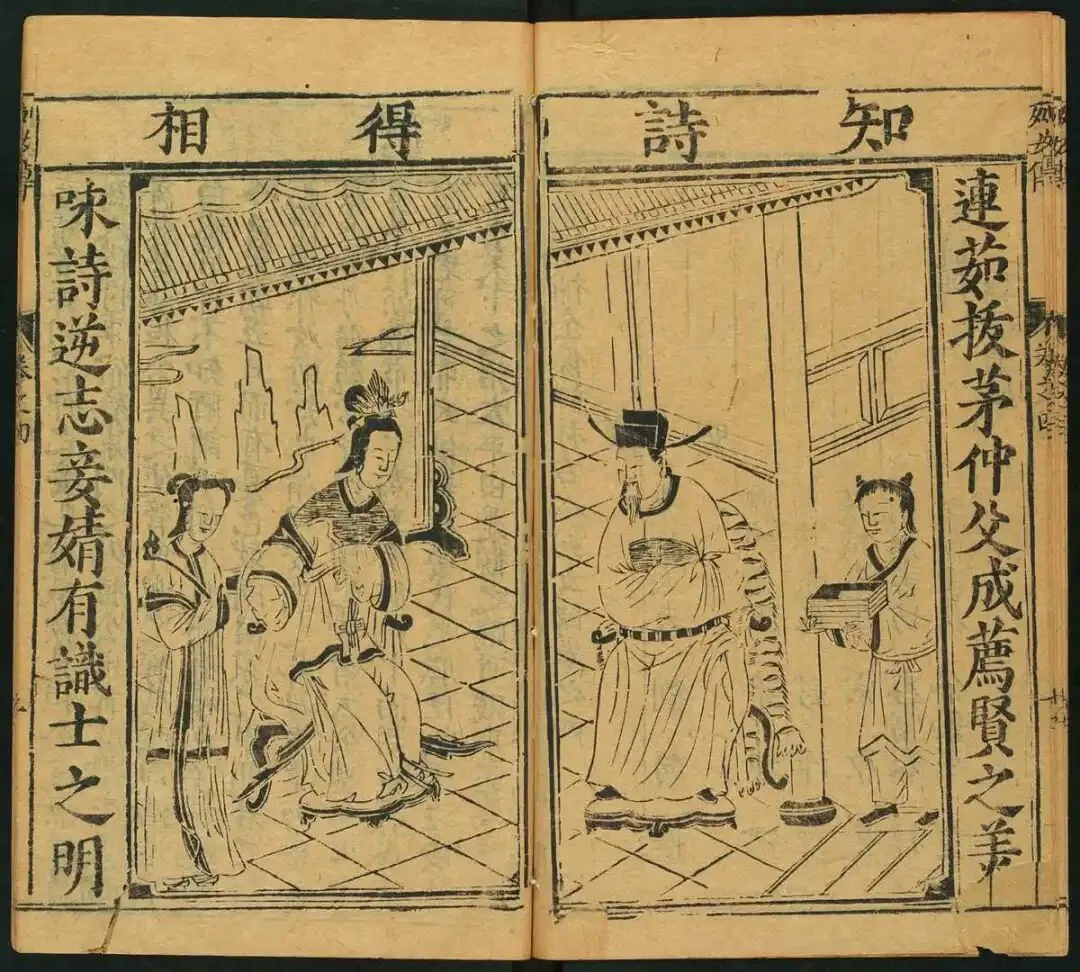 知詩得相
連茹拔茅仲父成薦賢之美
味詩逆志妾婧有識士之明